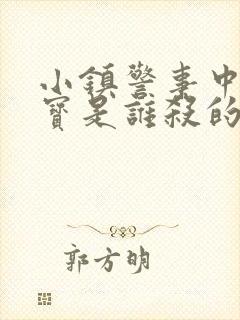 小鎮警事中
寶是誰殺的
郭方明